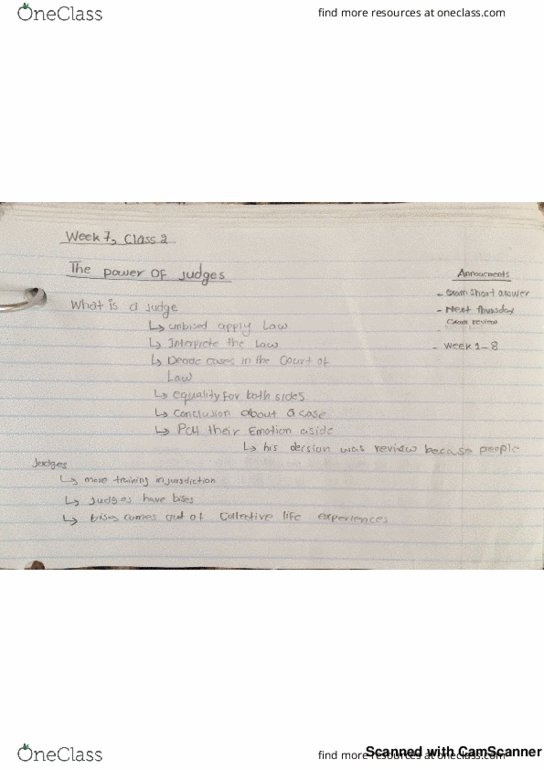 OneClass
find more resources at oneclass.com
Week 7, Class 2
The power of judges
Annocments
- Exam short answer
- Next Thursday
Exam review
- Week 1-8
What is a judge
↳ unbised apply Law
↳ Interprete the Law
↳ Decide cases in the Court of
Law
↳ equality for both sides
↳ Conclusion about a case
↳ Put their Emotion aside
↳ his decsion was review because people
Judges
↳ more training in jursdiction
↳ Judges have bises
↳ comes out of collective life experiences
OneClass
find more resources at oneclass.com
Scanned with CamScanner